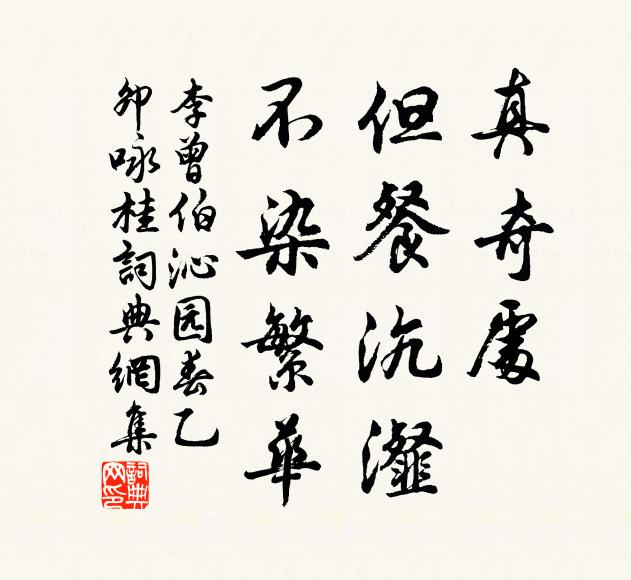 真奇處
但餐沆瀣
不染繁華
李曾伯沁园春乙
卯咏桂詞典網集
詞典
网印